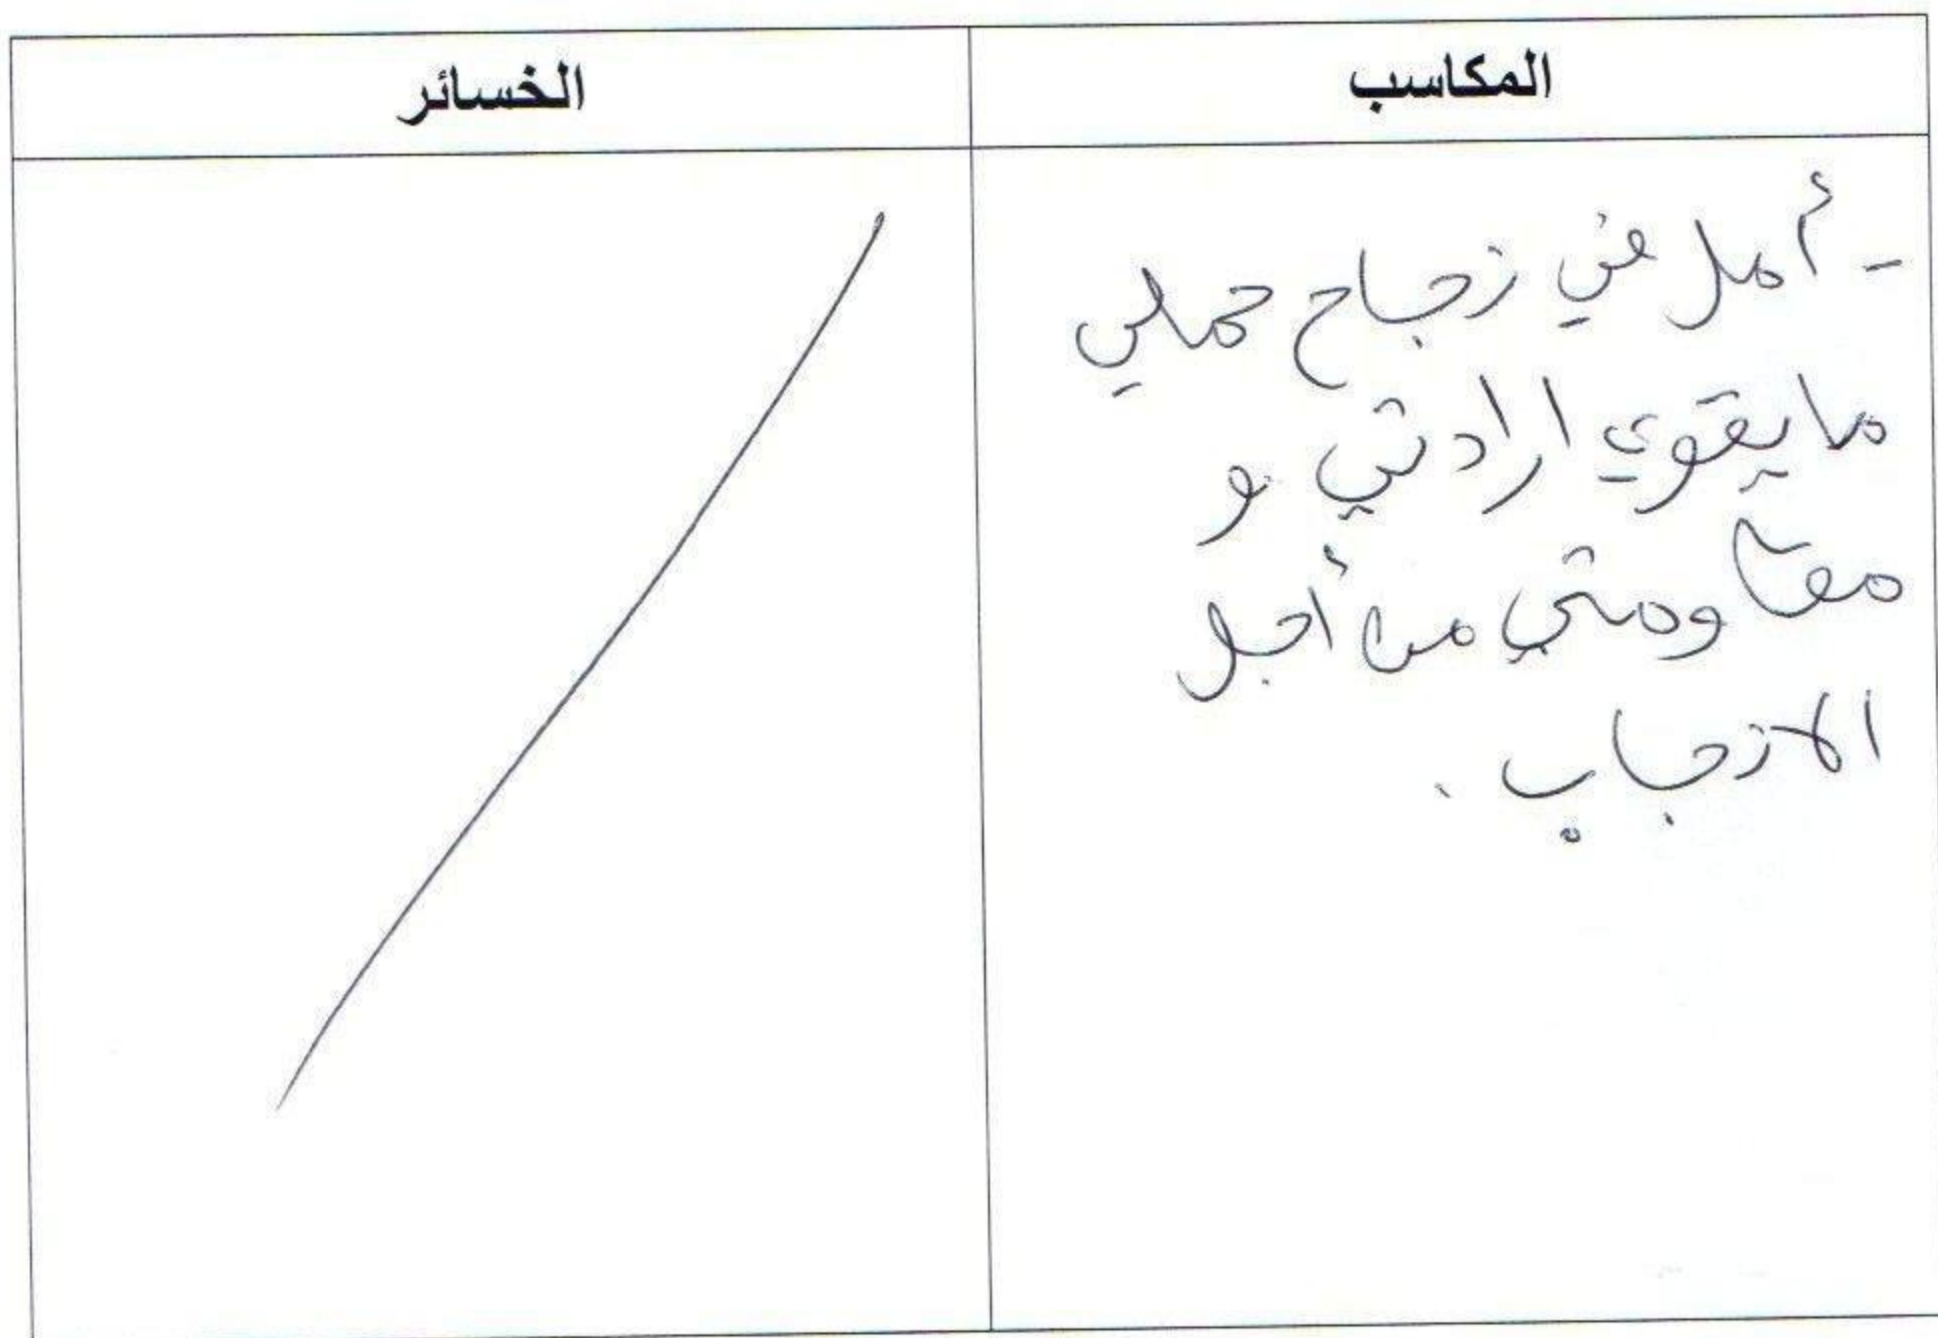 المكاسب
الخسائر
- أمل في نجاح حملي
ما يقوي ارادتي و
مقاومتي من أجل
الانجاب .